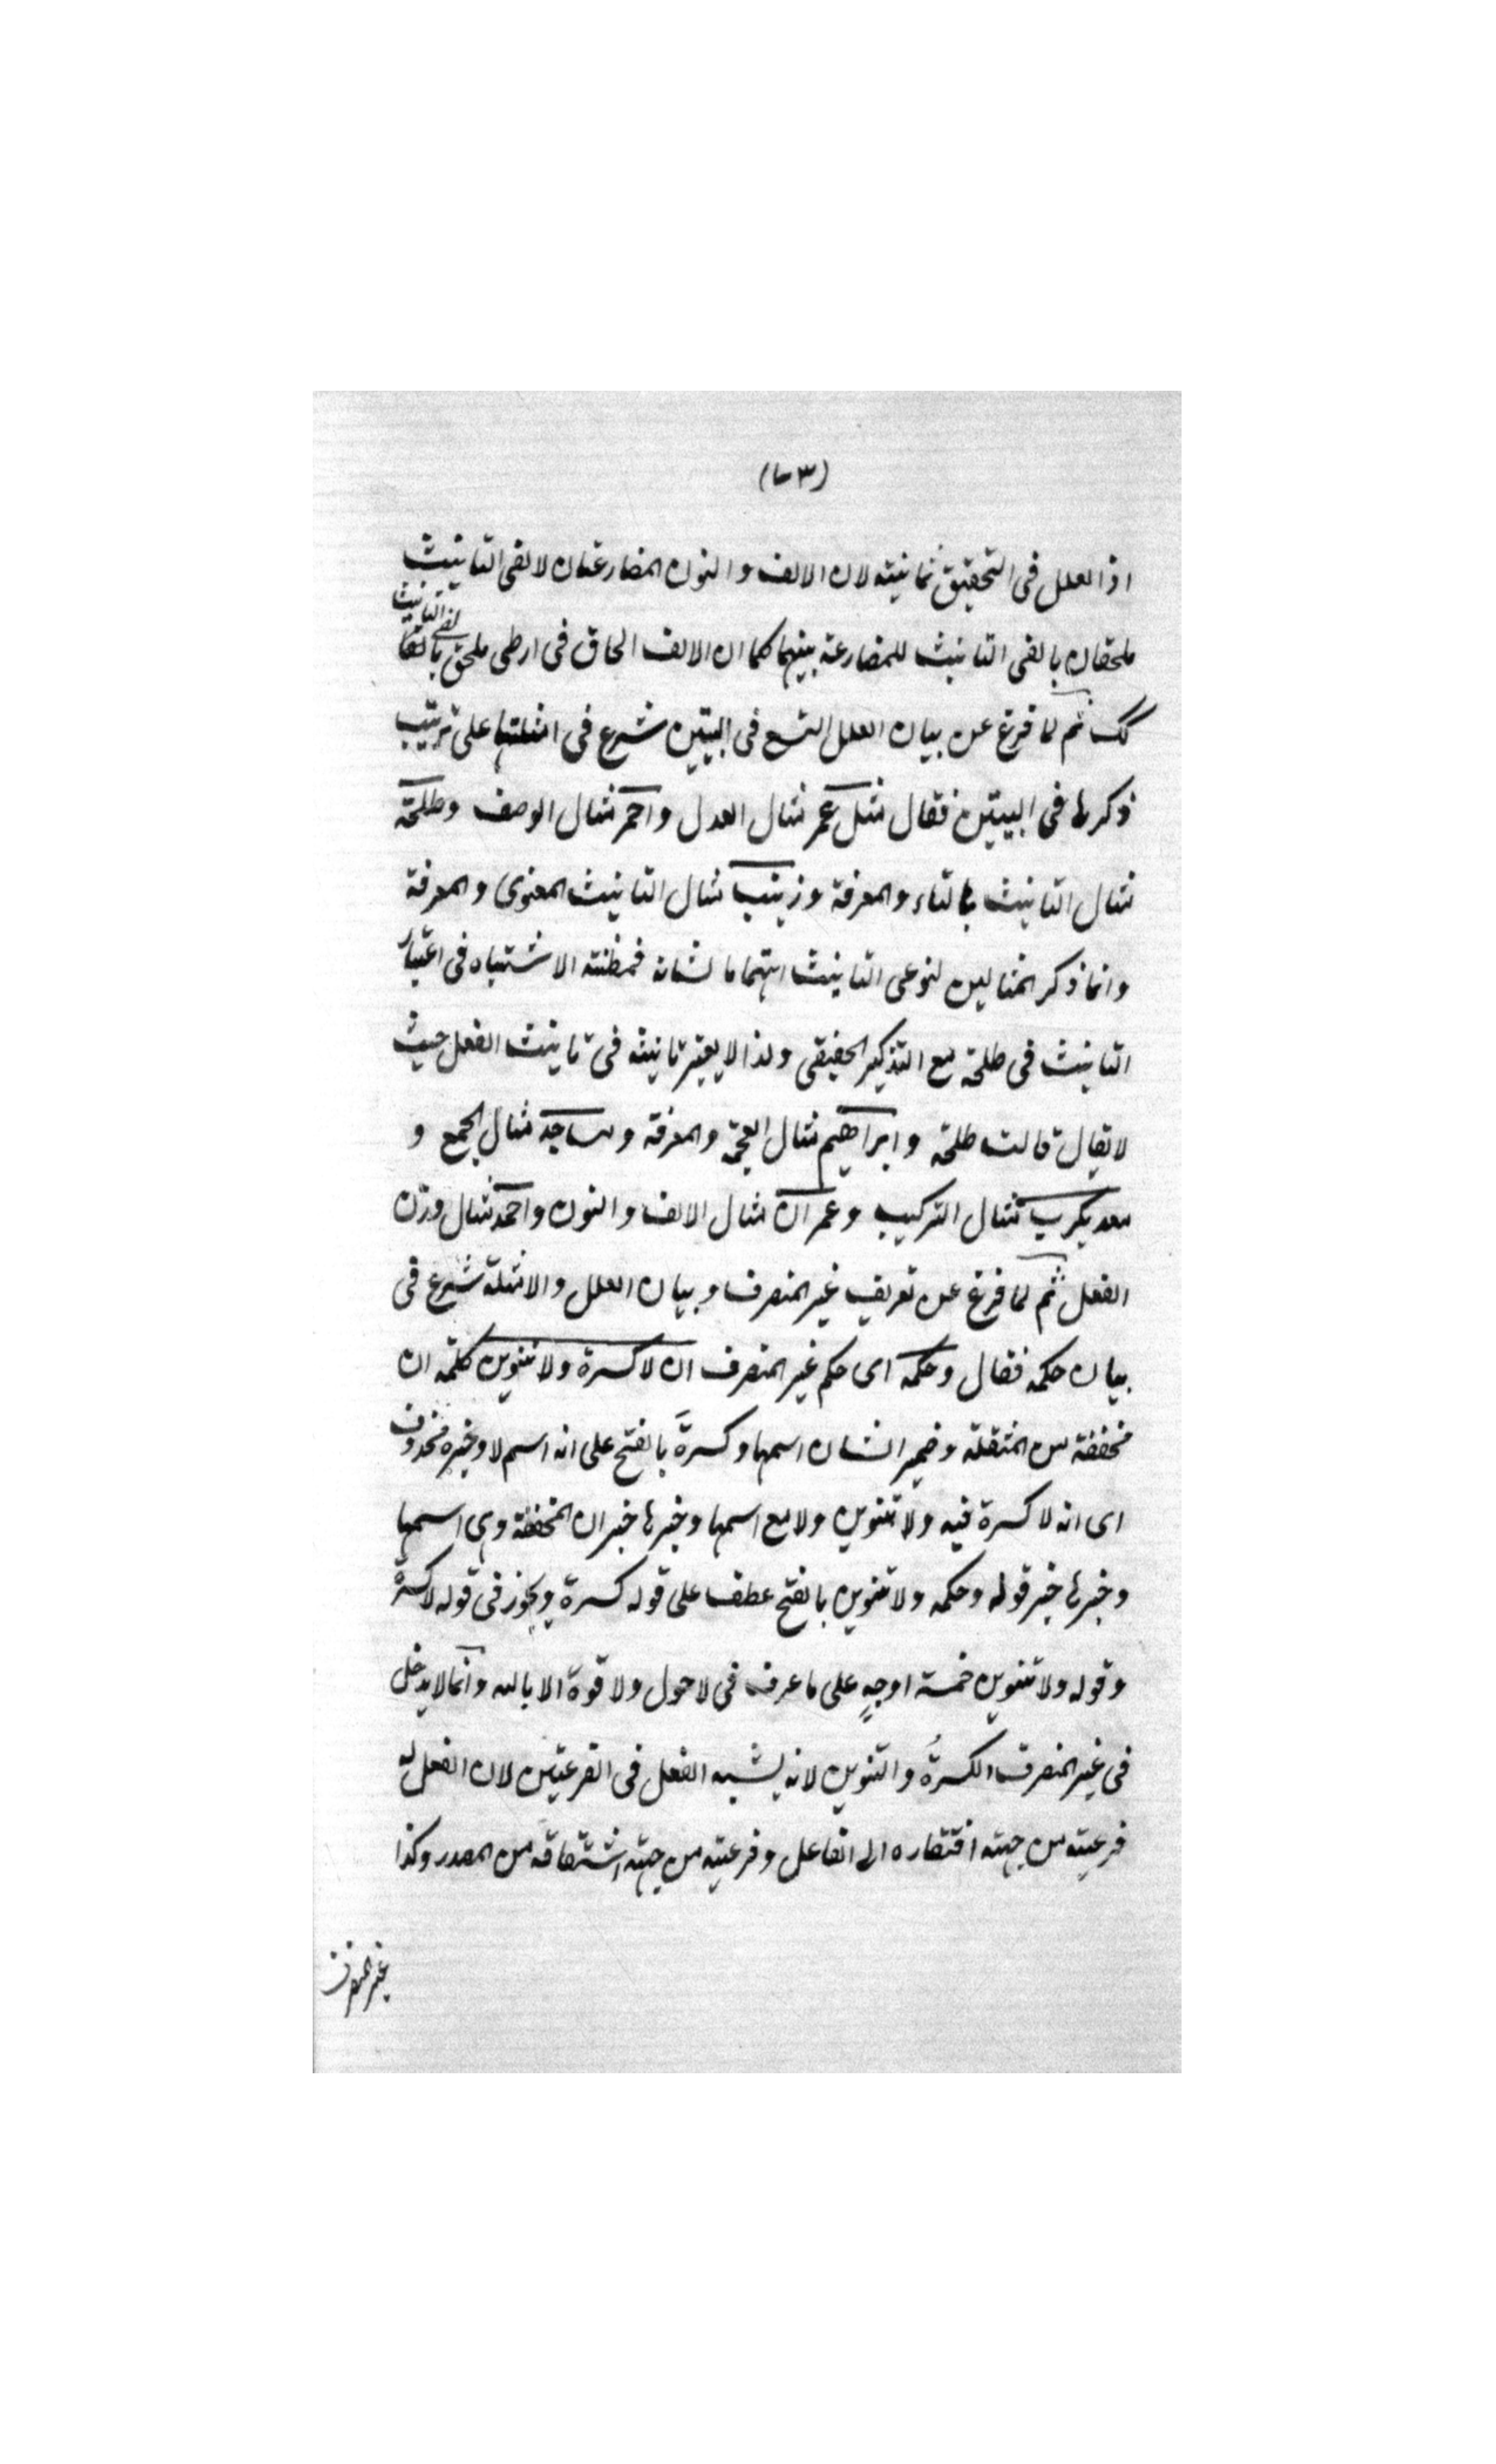 (٧٣)
اذ العلل فى التحقيق ثمانية لان الالف والنون المضارعتان لالفى التانيث
ملحقان بالفى التانيث للمضارعة بينهما كما ان الالف الحاق فى ارطى ملحق بالف التانيث
كك ثم لما فرغ عن بيان العلل التسع فى البيتين شرع فى امثلتها على ترتيب
ذكرها فى البيتين فقال مثل عمر مثال العدل واحمر مثال الوصف وطلحة
مثال التانيث بالتاء والمعرفة وزينب مثال التانيث المعنوى والمعرفة
وانما ذكر المثالين لنوعى التانيث اهتماما لشانه فمظنة الاشتباه فى اعتبار
التانيث فى طلحة مع التذكير الحقيقى ولذا لا يعتبر تانيثه فى تانيث الفعل حيث
لا يقال قالت طلحة وابراهيم مثال العجمة والمعرفة ومساجد مثال الجمع و
معديكرب مثال التركيب وعمران مثال الالف والنون واحمد مثال وزن
الفعل ثم لما فرغ عن تعريف غير المنصرف وبيان العلل والامثلة شرع فى
بيان حكمه فقال وحكمه اى حكم غير المنصرف ان لا كسرة ولا تنوين كلمة ان
مخففة من المثقلة وضمير الشان اسمها وكسرةَ بالفتح على انه اسم لا وخبره محذوف
اى انه لا كسرة فيه ولا تنوين ولا مع اسمها وخبرها خبر ان المخففة وهى اسمها
وخبرها خبر قوله وحكمه ولا تنوين بالفتح عطف على قوله كسرة ويجوز فى قوله لا كسرة
وقوله ولا تنوين خمسة اوجهٍ على ما عرف فى لا حول ولا قوة الا بالله وانما لا يدخل
فى غير المنصرف الكسرةُ والتنوين لانه يشبه الفعل فى الفرعيتين لان الفعل له
فرعية من جهة افتقاره الى الفاعل وفرعية من جهة اشتقاقه من المصدر وكذا
غير المنصرف